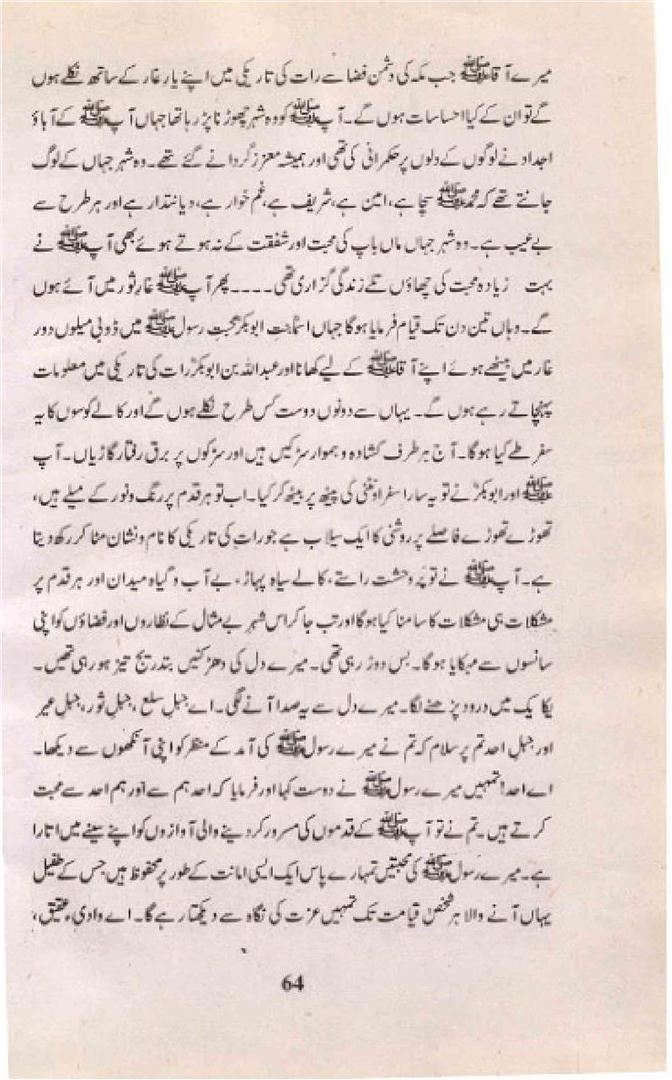 میرے آقا ﷺ جب مکہ کی دشمن فضا سے رات کی تاریکی میں اپنے یارِ غار کے ساتھ نکلے ہوں
گے تو ان کے کیا احساسات ہوں گے۔ آپ ﷺ کو وہ شہر چھوڑنا پڑ رہا تھا جہاں آپ ﷺ کے آباؤ
اجداد نے لوگوں کے دلوں پر حکمرانی کی تھی اور ہمیشہ معزز گردانے گئے تھے۔ وہ شہر جہاں کے لوگ
جانتے تھے کہ محمد ﷺ سچا ہے، امین ہے، شریف ہے، غم خوار ہے، دیانتدار ہے اور ہر طرح سے
بے عیب ہے۔ وہ شہر جہاں ماں باپ کی محبت اور شفقت کے نہ ہوتے ہوئے بھی آپ ﷺ نے
بہت زیادہ محبت کی چھاؤں تلے زندگی گزاری تھی۔۔۔۔ پھر آپ ﷺ غارِ ثور میں آئے ہوں
گے۔ وہاں تین دن تک قیام فرمایا ہوگا جہاں اسماؓ بنتِ ابوبکرؓ محبتِ رسول ﷺ میں ڈوبی میلوں دور
غار میں بیٹھے ہوئے اپنے آقا ﷺ کے لیے کھانا اور عبداللہ بن ابوبکرؓ رات کی تاریکی میں معلومات
پہنچاتے رہے ہوں گے۔ یہاں سے دونوں دوست کس طرح نکلے ہوں گے اور کالے کوسوں کا یہ
سفر طے کیا ہوگا۔ آج ہر طرف کشادہ و ہموار سڑکیں ہیں اور سڑکوں پر برق رفتار گاڑیاں۔ آپ
ﷺ اور ابوبکرؓ نے تو یہ سارا سفر اونٹنی کی پیٹھ پر بیٹھ کر کیا۔ اب تو ہر قدم پر رنگ و نور کے میلے ہیں،
تھوڑے تھوڑے فاصلے پر روشنی کا ایک سیلاب ہے جو رات کی تاریکی کا نام و نشان مٹا کر رکھ دیتا
ہے۔ آپ ﷺ نے تو پُر وحشت راستے، کالے سیاہ پہاڑ، بے آب و گیاہ میدان اور ہر قدم پر
مشکلات ہی مشکلات کا سامنا کیا ہوگا اور تب جا کر اس شہرِ بے مثال کے نظاروں اور فضاؤں کو اپنی
سانسوں سے مہکایا ہوگا۔ بس دوڑ رہی تھی۔ میرے دل کی دھڑکنیں بتدریج تیز ہو رہی تھیں۔
یکایک میں درود پڑھنے لگا۔ میرے دل سے یہ صدا آنے لگی۔ اے جبلِ سلع، جبلِ ثور، جبلِ عیر
اور جبلِ احد تم پر سلام کہ تم نے میرے رسول ﷺ کی آمد کے منظر کو اپنی آنکھوں سے دیکھا۔
اے احد! تمہیں میرے رسول ﷺ نے دوست کہا اور فرمایا کہ احد ہم سے اور ہم احد سے محبت
کرتے ہیں۔ تم نے تو آپ ﷺ کے قدموں کی مسرور کر دینے والی آوازوں کو اپنے سینے میں اتارا
ہے۔ میرے رسول ﷺ کی محبتیں تمہارے پاس ایک ایسی امانت کے طور پر محفوظ ہیں جس کے طفیل
یہاں آنے والا ہر شخص قیامت تک تمہیں عزت کی نگاہ سے دیکھتا رہے گا۔ اے وادیِ عقیق،
64